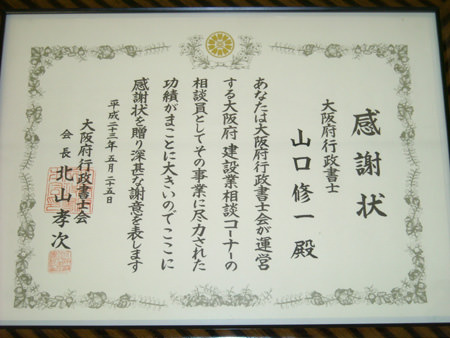 感謝状
大阪府行政書士
山口修一殿
あなたは大阪府行政書士会が運営
する大阪府建設業相談コーナーの
相談員としてその事業に尽力された
功績がまことに大きいのでここに
感謝状を贈り深甚な謝意を表します
平成二十三年五月二十五日
大阪府行政書士会
会長 北山孝次